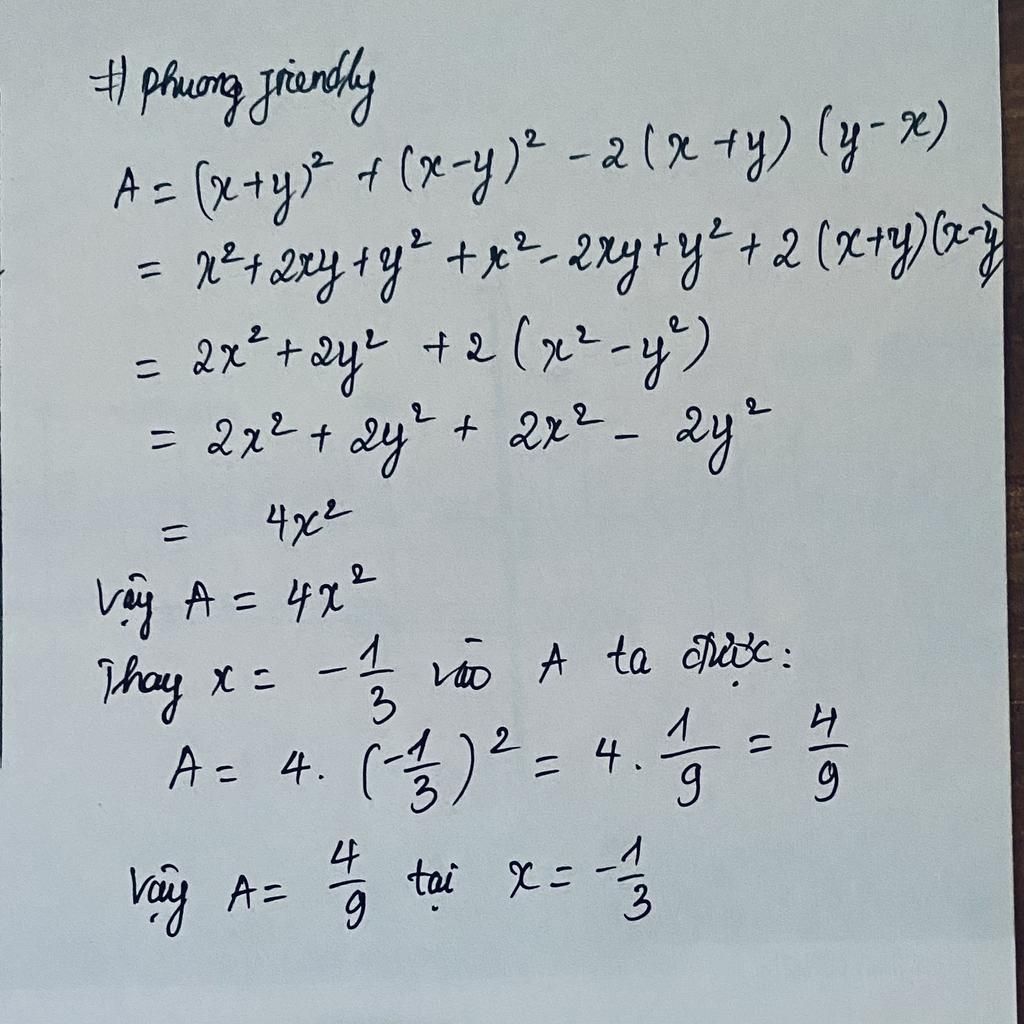 # phuong friendly
A = (x+y)² + (x-y)² - 2(x+y)(y-x)
= x² + 2xy + y² + x² - 2xy + y² + 2(x+y)(x-y)
= 2x² + 2y² + 2(x² - y²)
= 2x² + 2y² + 2x² - 2y²
= 4x²
Vậy A = 4x²
Thay x = -1/3 vào A ta được:
A = 4. (-1/3)² = 4. 1/9 = 4/9
Vậy A = 4/9 tại x = -1/3